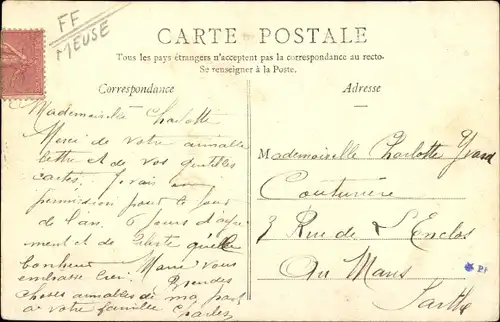 FF
MEUSE
CARTE POSTALE
Tous les pays étrangers n'acceptent pas la correspondance au recto-
Se renseigner à la Poste.
Correspondance
Adresse
Mademoiselle Charlotte
Merci de votre aimable
lettre et de vos gentilles
cartes, j'irais en
permission pour le jour
de l'an. 6 jours d'agré
ment et de liberté quelle
bonheur. Marie vous
embrasse bien. Prendes
choses aimables de ma part
a votre famille Charles
Mademoiselle Charlotte Yvard
Couturière
3 Rue de L'Enclos
Au Mans
Sarthe